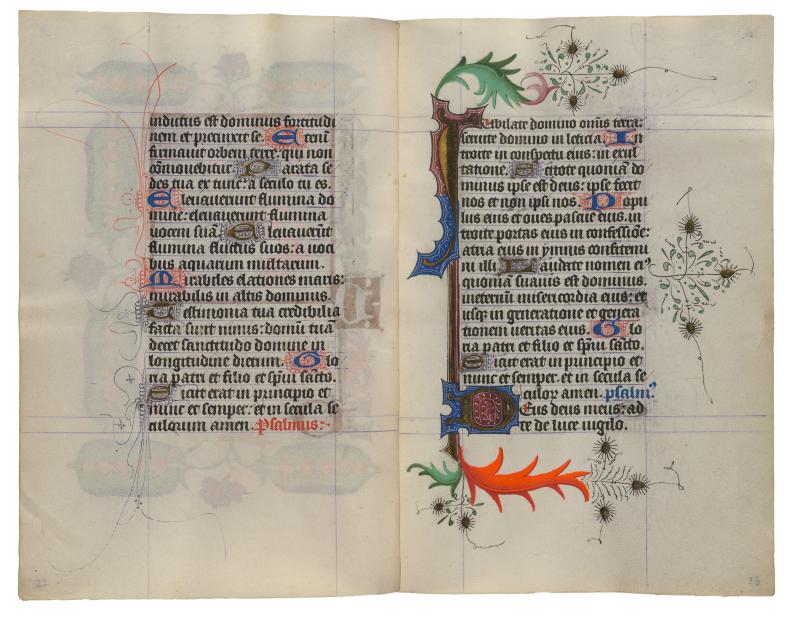 indutus est dominus fortitudi
nem et precinxit se. Etenī
firmauit orbem terre: qui non
cōmouebitur. Parata se
des tua ex tunc: a seculo tu es.
Eleuauerunt flumina do
mine: eleuauerunt flumina
uocem suā. Eleuauerūt
flumina fluctus suos: a uoci
bus aquarum multarum.
Mirabiles elationes maris:
mirabilis in altis dominus.
Testimonia tua credibilia
facta sunt nimis: domū tuā
decet sanctitudo domine in
longitudine dierum. Glo
ria patri et filio et spūi sācto.
Sicut erat in principio et
nunc et semper: et in secula se
culorum amen. Psalmus:
Iubilate domino omīs terra:
seruite domino in leticia. In
troite in conspectu eius: in exul
tatione. Scitote quoniā do
minus ipse est deus: ipse fecit
nos et non ipsi nos. Popu
lus eius et oues pascue eius. in
troite portas eius in confessiōe:
atria eius in ymnis confitemi
ni illi. Laudate nomen eiꝰ
quoniā suauis est dominus.
ineternū misericordia eius: et
usqꝫ in generatione et genera
tionem ueritas eius. Glo
ria patri et filio et spūi sācto.
Sicut erat in principio et
nunc et semper. et in secula se
culor amen. psalmꝰ
Deus deus meus: ad
te de luce uigilo.
22
23